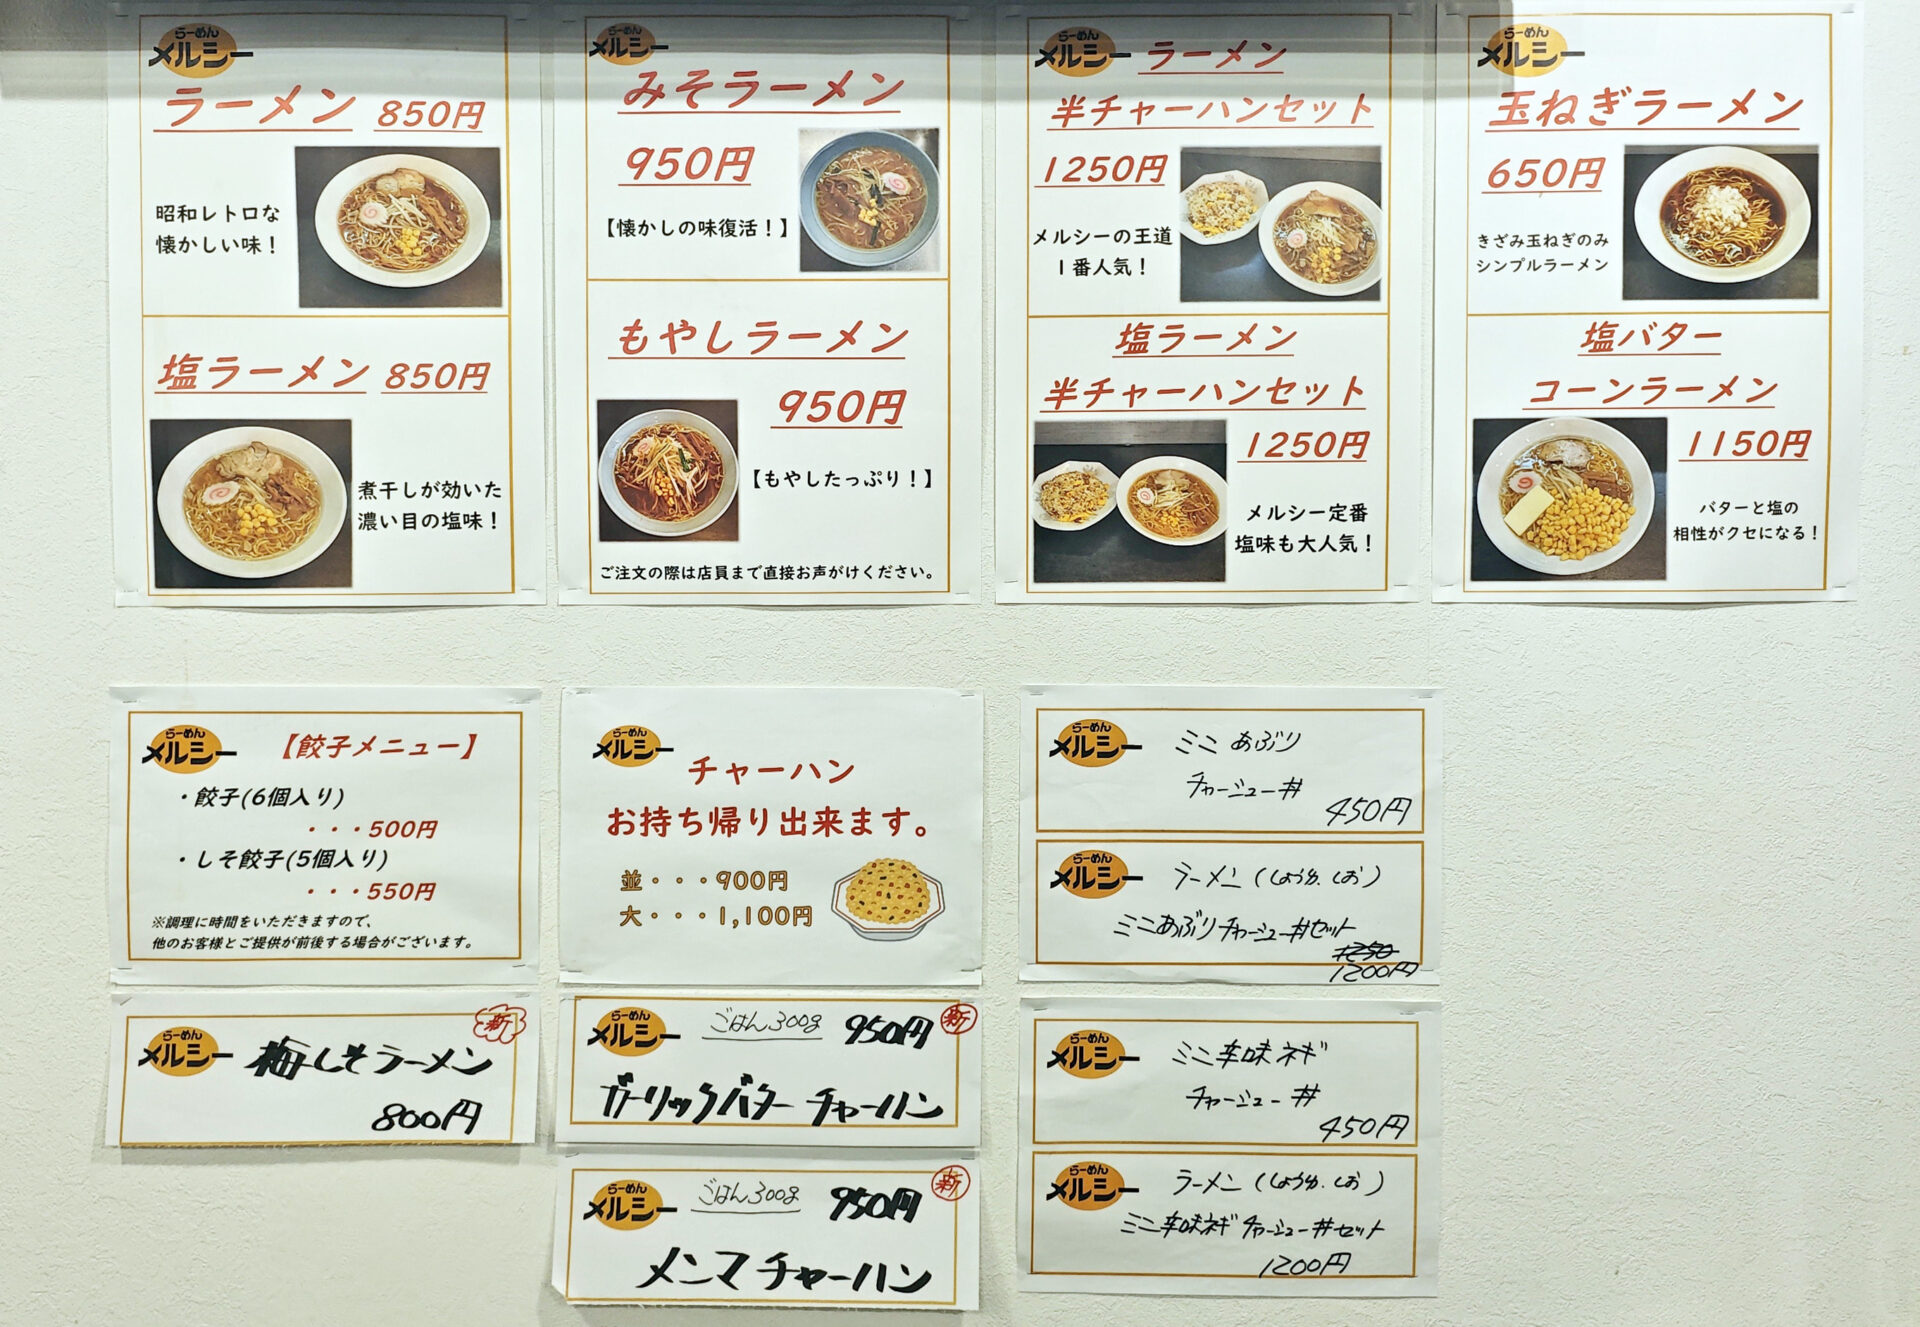 らーめん
メルシー
ラーメン 850円
昭和レトロな
懐かしい味！
塩ラーメン 850円
煮干しが効いた
濃い目の塩味！
らーめん
メルシー
みそラーメン
950円
【懐かしの味復活！】
もやしラーメン
950円
【もやしたっぷり！】
ご注文の際は店員まで直接お声がけください。
らーめん
メルシー
ラーメン
半チャーハンセット
1250円
メルシーの王道
1番人気！
塩ラーメン
半チャーハンセット
1250円
メルシー定番
塩味も大人気！
らーめん
メルシー
玉ねぎラーメン
650円
きざみ玉ねぎのみ
シンプルラーメン
塩バター
コーンラーメン
1150円
バターと塩の
相性がクセになる！
らーめん
メルシー
【餃子メニュー】
・餃子(6個入り)
・・・500円
・しそ餃子(5個入り)
・・・550円
※調理に時間をいただきますので、
他のお客様とご提供が前後する場合がございます。
らーめん
メルシー
チャーハン
お持ち帰り出来ます。
並・・・900円
大・・・1,100円
らーめん
メルシー
ミニ あぶり
チャーシュー丼
450円
らーめん
メルシー
ラーメン (しょうゆ.しお)
ミニあぶりチャーシュー丼セット
1250
1200円
らーめん
メルシー
新
梅しそラーメン
800円
らーめん
メルシー
ごはん300g 950円 新
ガーリックバター チャーハン
らーめん
メルシー
ごはん300g 950円 新
メンマチャーハン
らーめん
メルシー
ミニ辛味ネギ
チャーシュー丼
450円
らーめん
メルシー
ラーメン (しょうゆ.しお)
ミニ辛味ネギチャーシュー丼セット
1200円